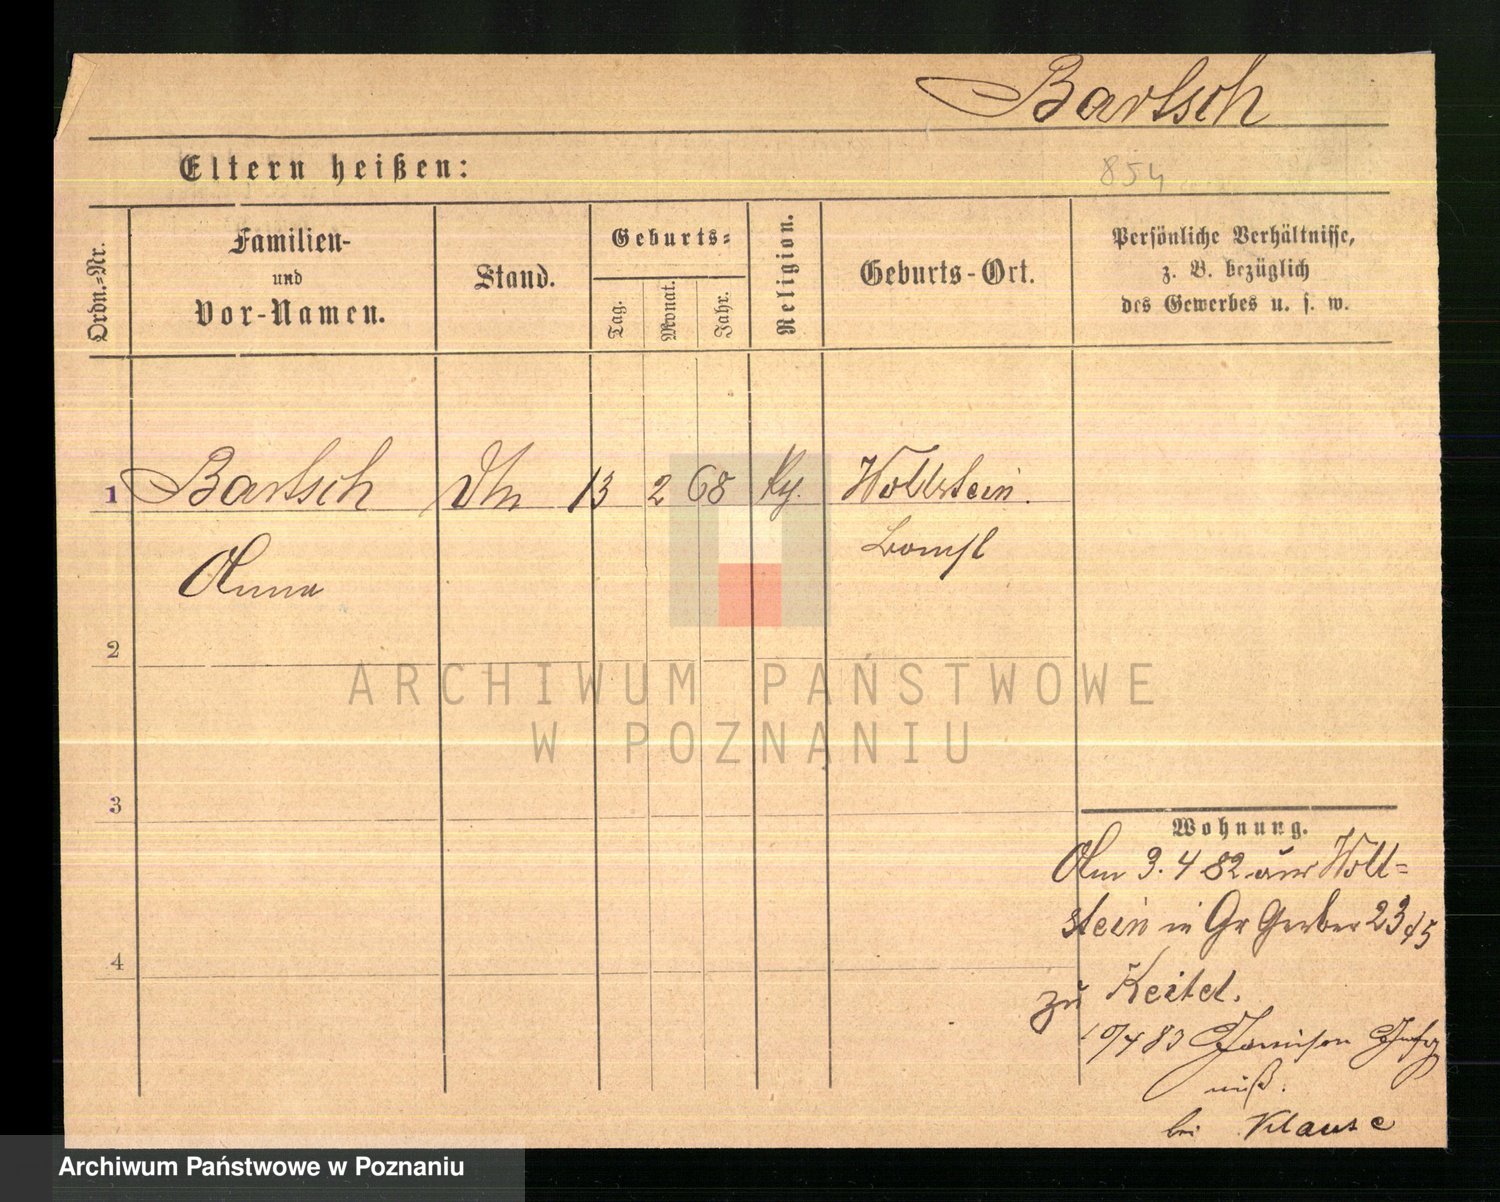 Bartsch
Eltern heißen:
854
Ordn.-Nr.
Familien-
und
Vor-Namen.
Stand.
Geburts-
Tag.
Monat.
Jahr.
Religion.
Geburts-Ort.
Persönliche Verhältnisse,
z. B. bezüglich
des Gewerbes u. s. w.
1 Bartsch 13 2 68 Wollstein.
Anna Bomst
2
ARCHIWUM PAŃSTWOWE
W POZNANIU
3
Wohnung.
Am 3. 4 82 aus Woll=
stein in Gr Gerber 23
zu Keitel.
10/4 83
bei Klause
4
Archiwum Państwowe w Poznaniu